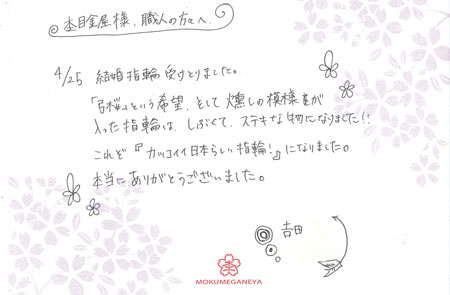 杢目金屋様、職人の方々へ
4/25 結婚指輪受けとりました。
「弓桜」という希望、そして燻しの模様が
入った指輪は、しぶくて、ステキな物になりました!!
これぞ『カッコイイ日本らしい指輪!』になりました。
本当にありがとうございました。
吉田
MOKUMEGANEYA